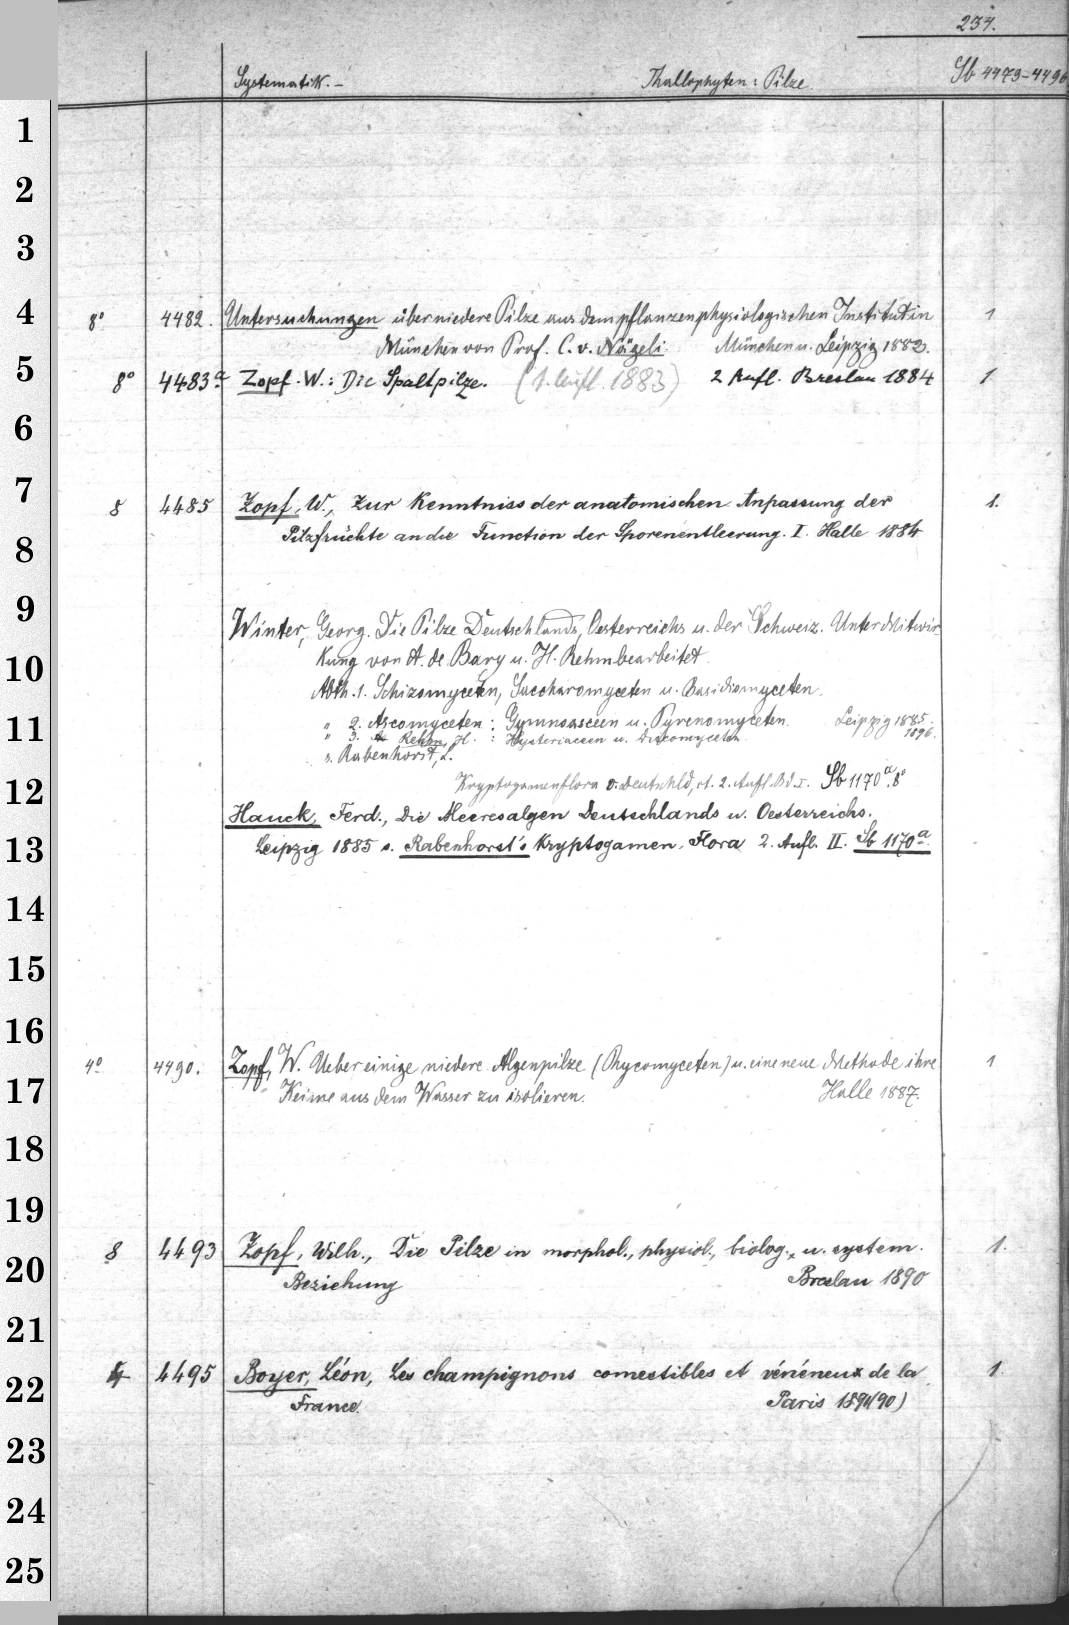 234.
Systematik. – Thallophyten: Pilze. Sb 4479–4496
1
2
3
4
8° 4482. Untersuchungen über niedere Pilze aus dem pflanzenphysiologischen Institut in 1
München von Prof. C. v. Nägeli. München u. Leipzig 1882.
5
8° 4483a Zopf. W.: Die Spaltpilze. (1. Aufl. 1883) 2 Aufl. Breslau 1884 1
6
7
8 4485 Zopf, W., Zur Kenntniss der anatomischen Anpassung der 1.
Pilzfrüchte an die Function der Sporenentleerung. I. Halle 1884
8
9
Winter, Georg. Die Pilze Deutschlands, Oesterreichs u. der Schweiz. Unter Mitwir
kung von A. de Bary u. H. Rehm bearbeitet.
10
Abth. 1. Schizomyceten, Saccharomyceten u. Basidiomyceten.
11
" 2. Ascomyceten: Gymnoasceen u. Pyrenomyceten. Leipzig 1885.
" 3. Rehm, H. : Hysteriaceen u. Discomyceten 1896.
s. Rabenhorst, L.
12
Kryptogamenflora v. Deutschld, 2. Aufl. Bd. I. Sb 1170a. 8°
Hauck, Ferd., Die Meeresalgen Deutschlands u. Oesterreichs.
13
Leipzig 1885 s. Rabenhorst's Kryptogamen-Flora 2. Aufl. II. Sb 1170a.
14
15
16
4° 4490. Zopf, W. Ueber einige niedere Algenpilze (Phycomyceten) u. eine neue Methode ihre 1
17
Keime aus dem Wasser zu isolieren. Halle 1887.
18
19
8 4493 Zopf, Wilh., Die Pilze in morphol., physiol., biolog., u. system. 1.
20
Beziehung Breslau 1890
21
4 4495 Boyer, Léon, Les champignons comestibles et vénéneux de la 1.
22
France. Paris 1891(90)
23
24
25